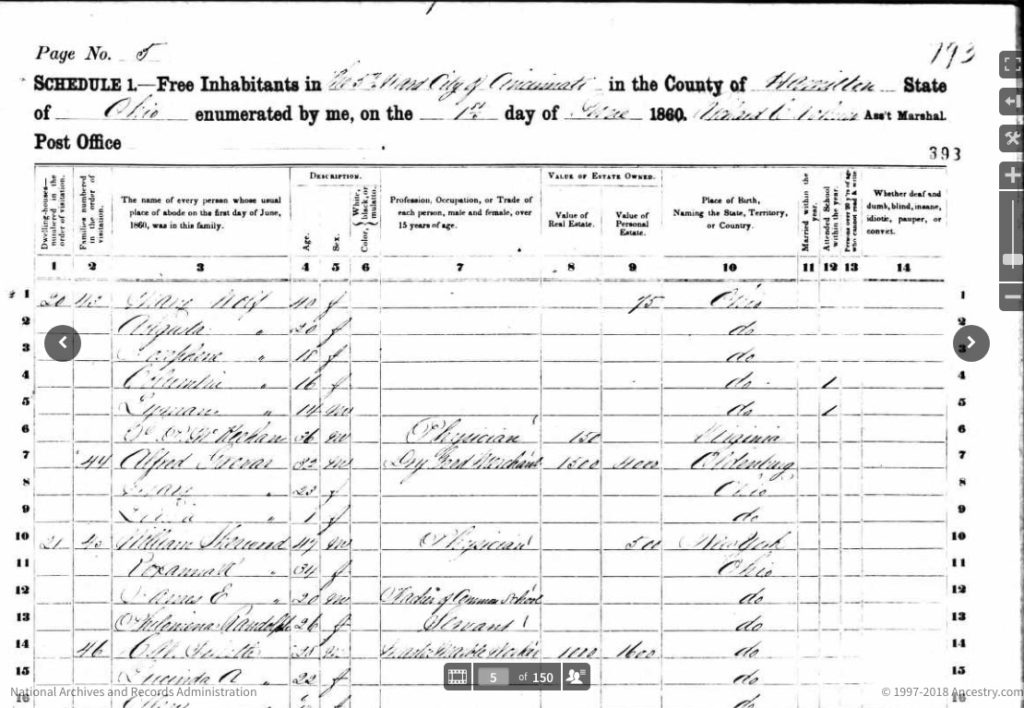 Page No. 5
193
SCHEDULE 1.—Free Inhabitants in the 5th Ward City of Cincinnati in the County of Hamilton State
of Ohio enumerated by me, on the 1st day of June 1860. Richard C. Ass't Marshal.
Post Office
393
Dwelling-houses—numbered in the order of visitation.
Families numbered in the order of visitation.
The name of every person whose usual place of abode on the first day of June, 1860, was in this family.
DESCRIPTION.
Age.
Sex.
Color, { White, black, or mulatto.
Profession, Occupation, or Trade of each person, male and female, over 15 years of age.
VALUE OF ESTATE OWNED.
Value of Real Estate.
Value of Personal Estate.
Place of Birth, Naming the State, Territory, or Country.
Married within the year.
Attended School within the year.
Persons over 20 y'rs of age who cannot read & write
Whether deaf and dumb, blind, insane, idiotic, pauper, or convict.
1 2 3 4 5 6 7 8 9 10 11 12 13 14
1 20 43 40 f 75 Ohio 1
2 Augusta " 20 f do 2
3 " 18 f do 3
4 Columbia " 16 f do 1 4
5 Lyman " 14 m do 1 5
6 36 m Physician 150 Virginia 6
7 44 Alfred 32 m Dry Good Merchant 1500 4000 Oldenburg 7
8 " 23 f Ohio 8
9 " 1 f do 9
10 21 45 William 47 m Physician 500 New York 10
11 Roxannah " 34 f Ohio 11
12 James E " 20 m Teacher of Common School do 12
13 Philomena Randolph 26 f Servant do 13
14 46 m 1000 1600 do 14
15 Lucinda A " 22 f do 15
16 do 16
5 of 150
National Archives and Records Administration
© 1997-2018 Ancestry.com